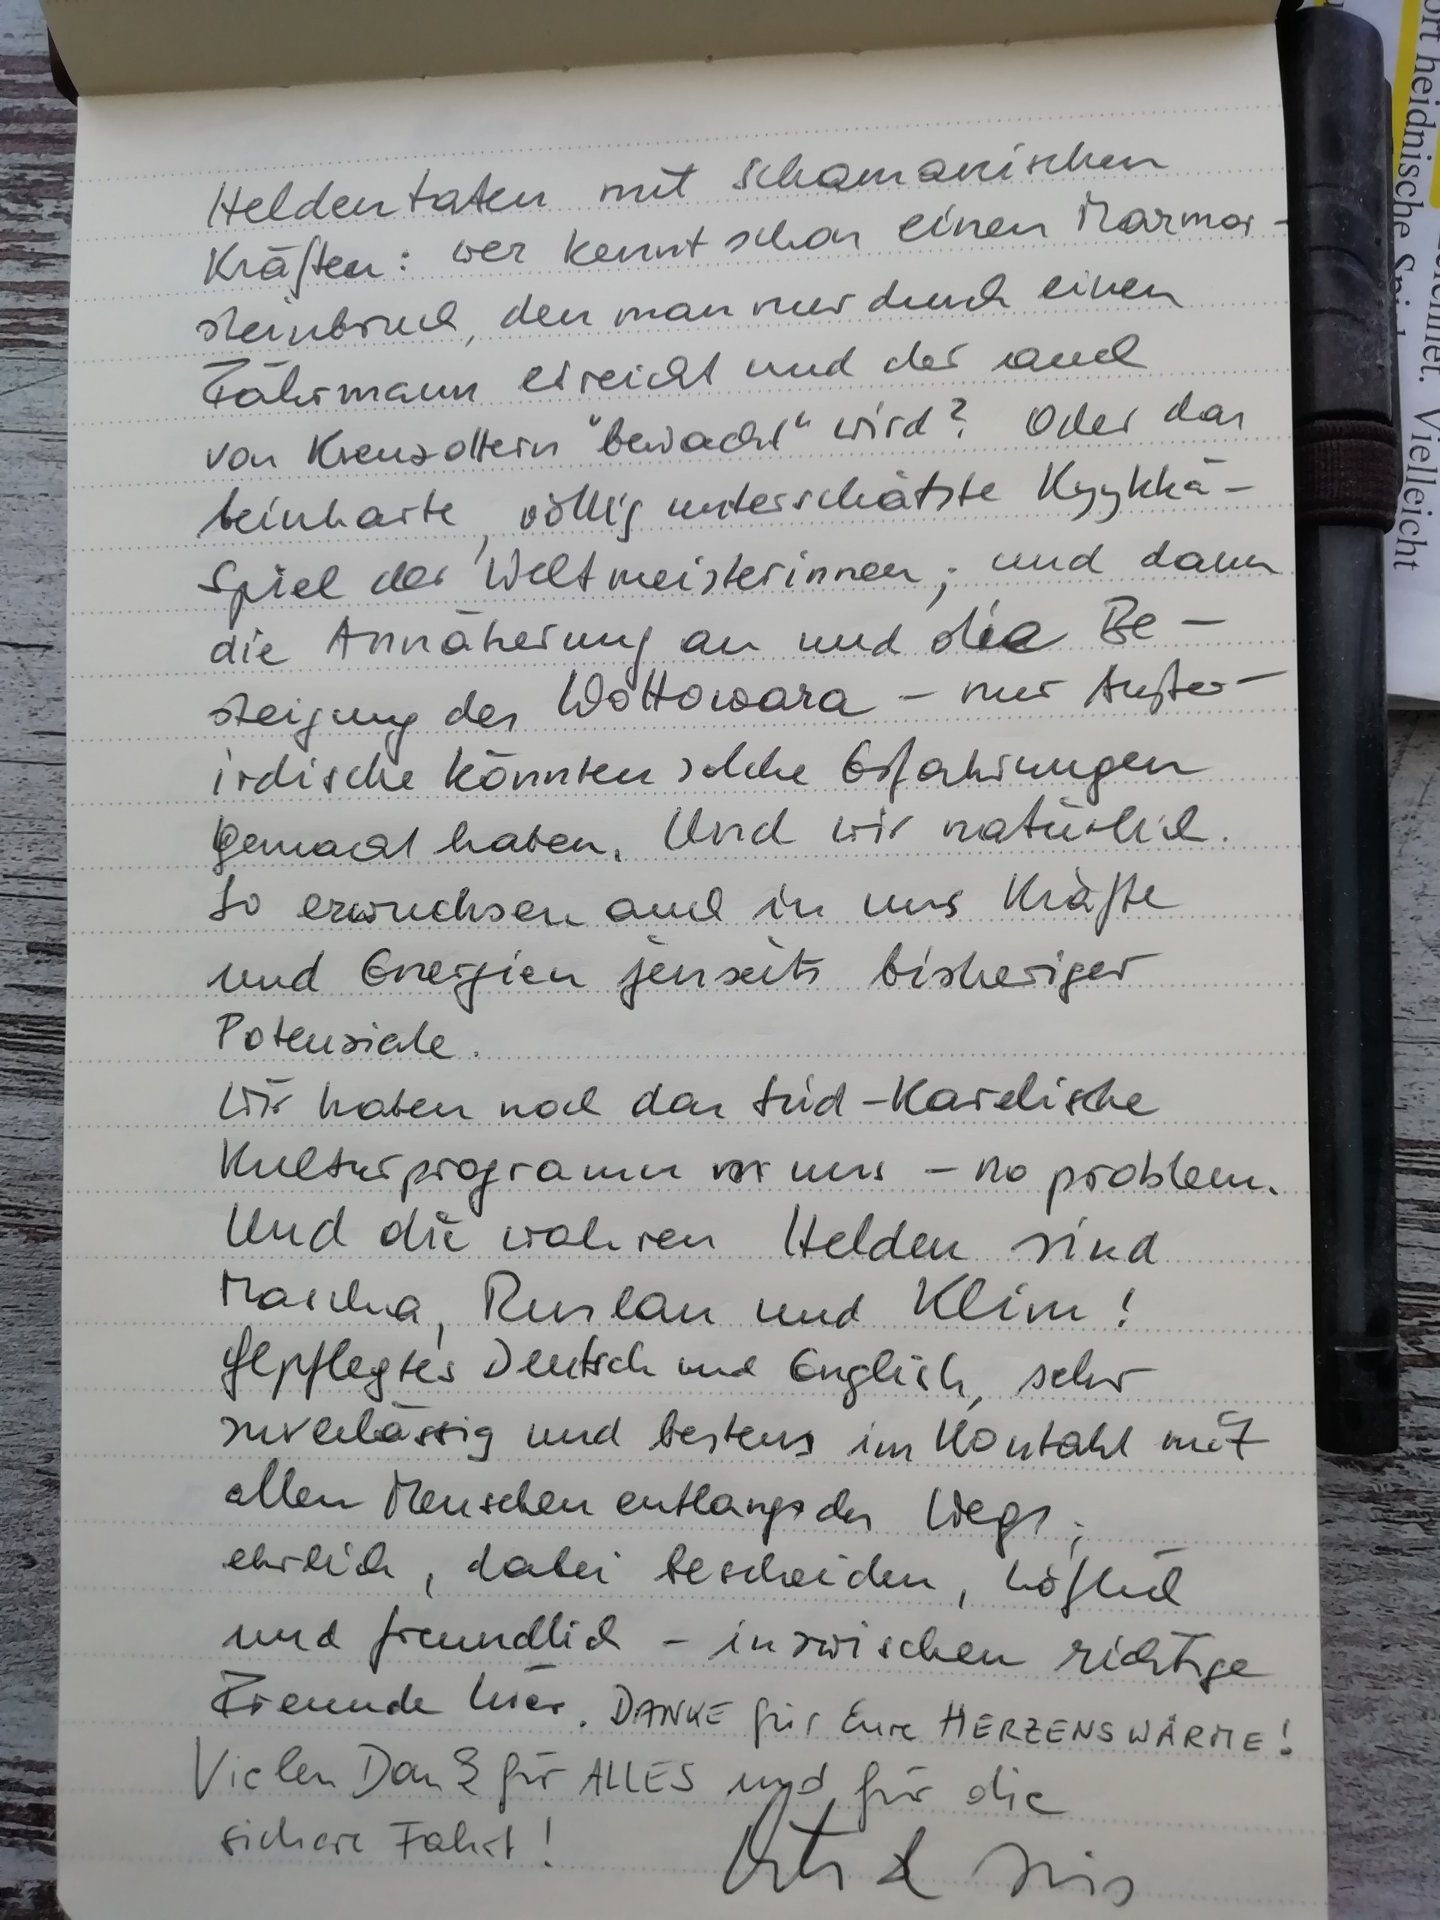 Heldentaten mit schamanischen
Kräften: wer kennt schon einen Marmor-
steinbruch, den man nur durch einen
Fährmann erreicht und der auch
von Kreuzottern "bewacht" wird? Oder das
beinharte, völlig unterschätzte Kyykkä-
Spiel der Weltmeisterinnen; und dann
die Annäherung an und die Be-
steigung des Wottowara - nur Außer-
irdische könnten solche Erfahrungen
gemacht haben. Und wir natürlich.
So erwuchsen auch in uns Kräfte
und Energien jenseits bisheriger
Potenziale.
Wir haben noch das Süd-Karelische
Kulturprogramm vor uns - no problem.
Und die wahren Helden sind
Mascha, Ruslan und Klim!
Gepflegtes Deutsch und Englisch, sehr
zuverlässig und bestens im Kontakt mit
allen Menschen entlang des Wegs;
ehrlich, dabei bescheiden, höflich
und freundlich - inzwischen richtige
Freunde hier. DANKE für Eure HERZENSWÄRME!
Vielen Dank für ALLES und für die
sichere Fahrt!
&
ort heidnische
Vielleicht